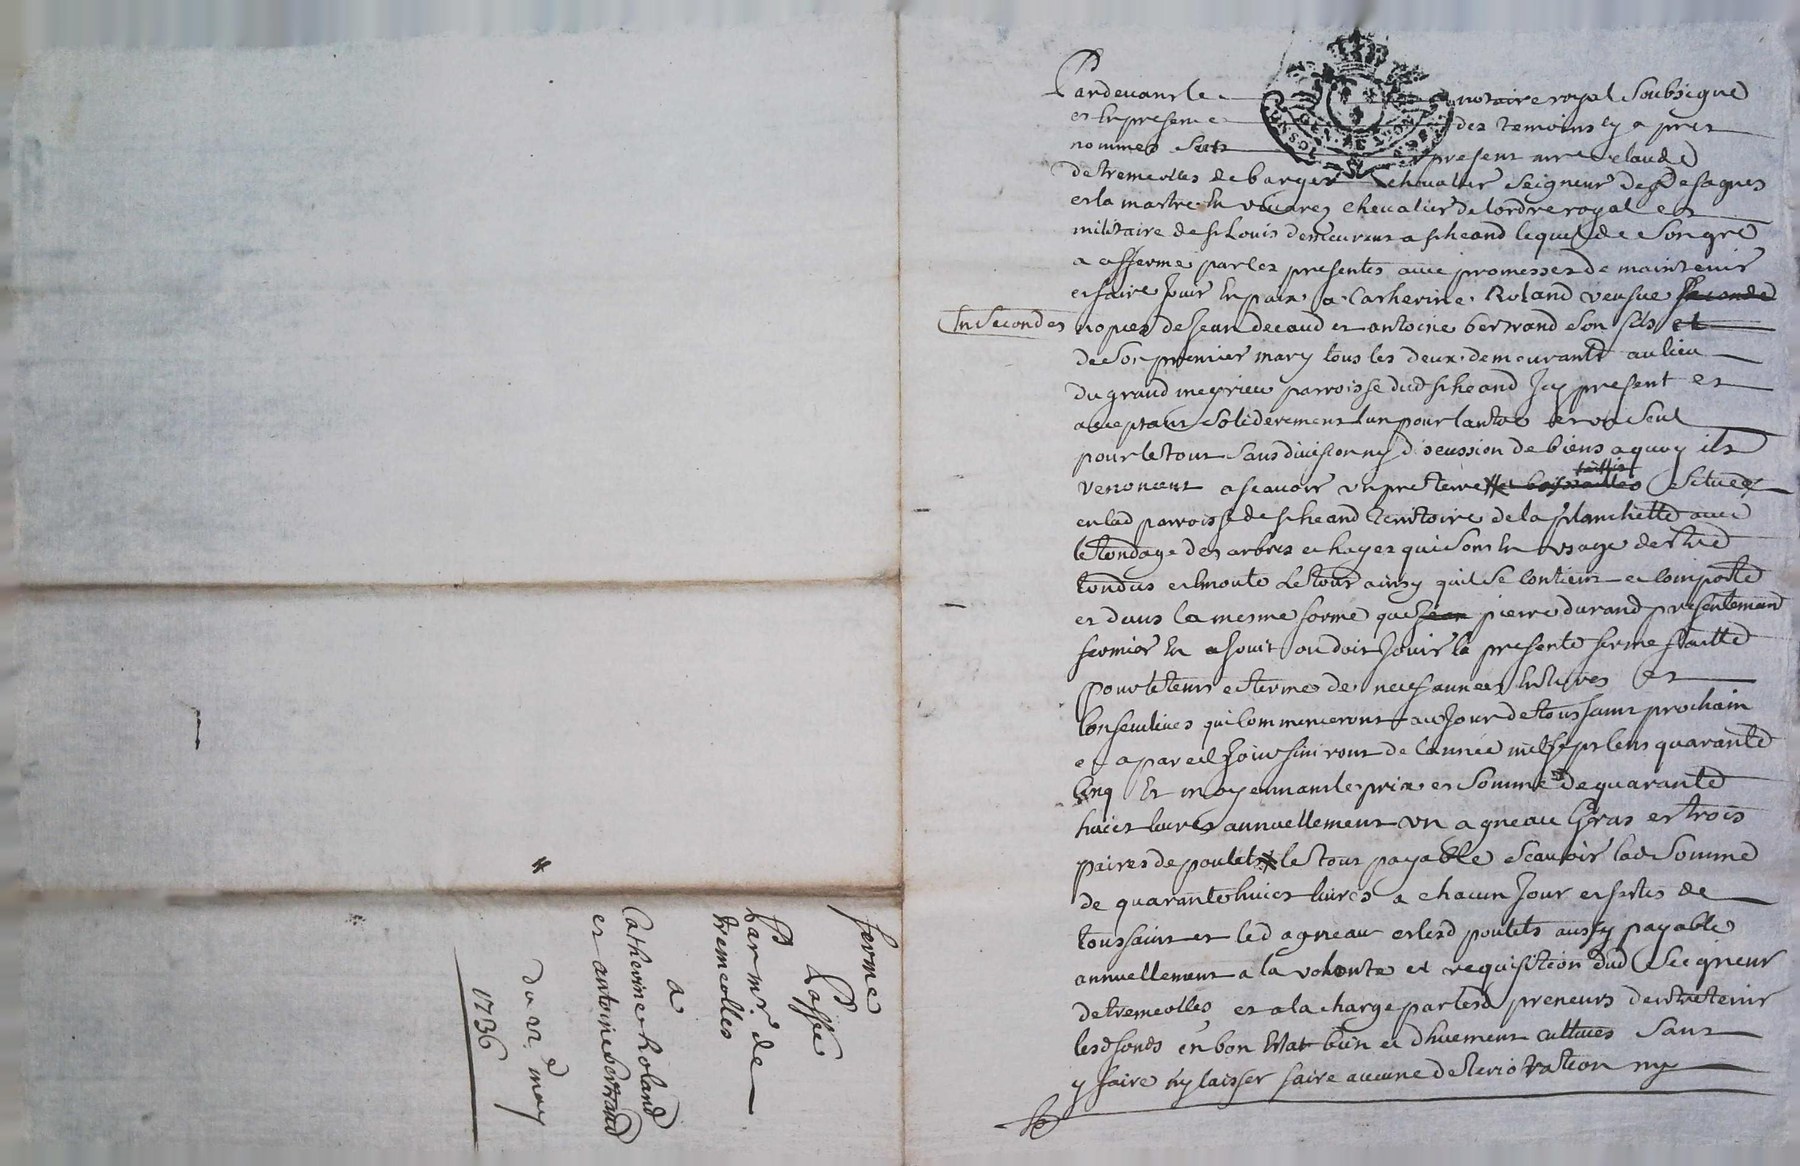 ferme
Passée
Par mr. de
tremeolles
a
Catherine Roland
et antoine bertrand
du 22e may
1736
Pardevant le notaire royal Soubsigné
et En presence des temoins Cy apres
nommes Sest present mre Claude
de tremeolles de barges chevalier Seigneur de Desagnes
et la mastre En vivarez chevalier de lordre royal et
militaire de St Louis demeurant a St heand lequel de Son gré
a afferme par les presentes avec promesses de maintenir
et faire Jouir En paix a Catherine Roland veufve seconde
En Secondes nopces de Jean decaud et antoine bertrand Son fils et
de Son premier mary tous les deux demeurants au lieu
du grand meyrieu parroisse dud St heand Icy present et
acceptant Soliderement Lun pour lautre et un Seul
pour le tout Sans division ny discussion de biens a quoy ils
renoncent a scavoir un pre terre et taillis Situés
en lad parroisse de St heand territoire de la planchette avec
le tondage des arbres et hayes qui Sont En usage destre
tondus et Emonte Le tout ainsy quil Se contient et comporte
et dans la mesme forme que Jean pierre durand presentement
fermier En a Jouit ou doit Jouir la presente ferme faitte
pour le tems et terme de neuf années Entieres et
Consecutives qui Commenceront au Jour de toussaint prochain
et a pareil Jour finiront de lannée mil Sept Cens quarante
Cinq Et moyennant le prix et Somme de quarante
huict livres annuellement un agneau Gras et trois
paires de poulets le tout payable Scavoir lad Somme
de quarante huict livres a chacun Jour et festes de
toussaint et led agneau et lesd poulets aussy payable
annuellement a la volonte et requisition dud Seigneur
de tremeolles et a la charge par lesd preneurs dentretenir
lesd fonds en bon Estat bien et dhuement cultives Sans
y faire ny laisser faire aucune deterioration ny